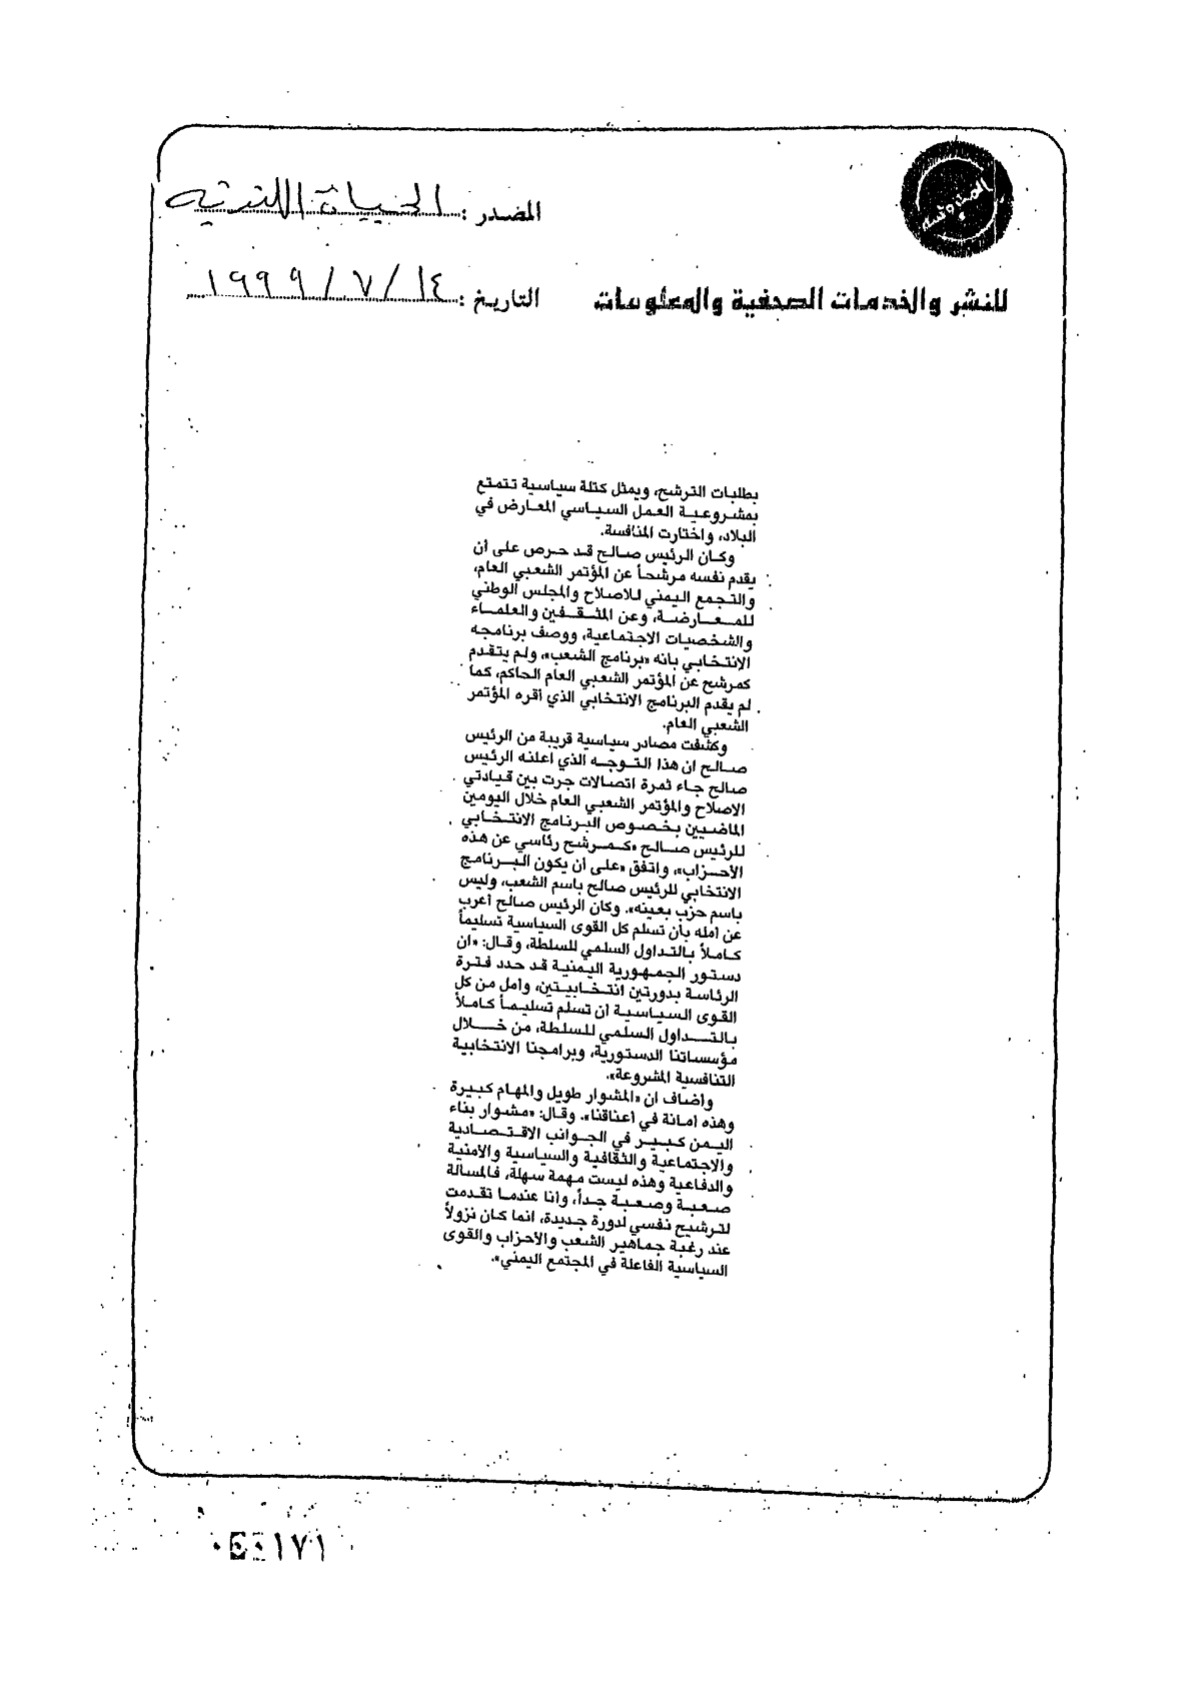 المصدر : الحياة اللندنيه
للنشر والخدمات الصحفية والمعلومات
التاريخ : ١٤ / ٧ / ١٩٩٩
بطلبات الترشح، ويمثل كتلة سياسية تتمتع
بمشروعية العمل السياسي المعارض في
البلاد، واختارت المنافسة.
وكان الرئيس صالح قد حرص على أن
يقدم نفسه مرشحاً عن المؤتمر الشعبي العام،
والتجمع اليمني للاصلاح والمجلس الوطني
للمعارضة، وعن المثقفين والعلماء
والشخصيات الاجتماعية، ووصف برنامجه
الانتخابي بانه «برنامج الشعب»، ولم يتقدم
كمرشح عن المؤتمر الشعبي العام الحاكم، كما
لم يقدم البرنامج الانتخابي الذي أقره المؤتمر
الشعبي العام.
وكشفت مصادر سياسية قريبة من الرئيس
صالح ان هذا التوجه الذي اعلنه الرئيس
صالح جاء ثمرة اتصالات جرت بين قيادتي
الاصلاح والمؤتمر الشعبي العام خلال اليومين
الماضيين بخصوص البرنامج الانتخابي
للرئيس صالح «كمرشح رئاسي عن هذه
الأحزاب»، واتفق «على أن يكون البرنامج
الانتخابي للرئيس صالح باسم الشعب، وليس
باسم حزب بعينه». وكان الرئيس صالح أعرب
عن امله بأن تسلم كل القوى السياسية تسليماً
كاملاً بالتداول السلمي للسلطة، وقال: «ان
دستور الجمهورية اليمنية قد حدد فترة
الرئاسة بدورتين انتخابيتين، وأمل من كل
القوى السياسية ان تسلم تسليماً كاملاً
بالتداول السلمي للسلطة، من خلال
مؤسساتنا الدستورية، وبرامجنا الانتخابية
التنافسية المشروعة».
واضاف ان «المشوار طويل والمهام كبيرة
وهذه امانة في أعناقنا». وقال: «مشوار بناء
اليمن كبير في الجوانب الاقتصادية
والاجتماعية والثقافية والسياسية والأمنية
والدفاعية وهذه ليست مهمة سهلة، فالمسالة
صعبة وصعبة جداً، وانا عندما تقدمت
لترشيح نفسي لدورة جديدة، انما كان نزولاً
عند رغبة جماهير الشعب والأحزاب والقوى
السياسية الفاعلة في المجتمع اليمني».